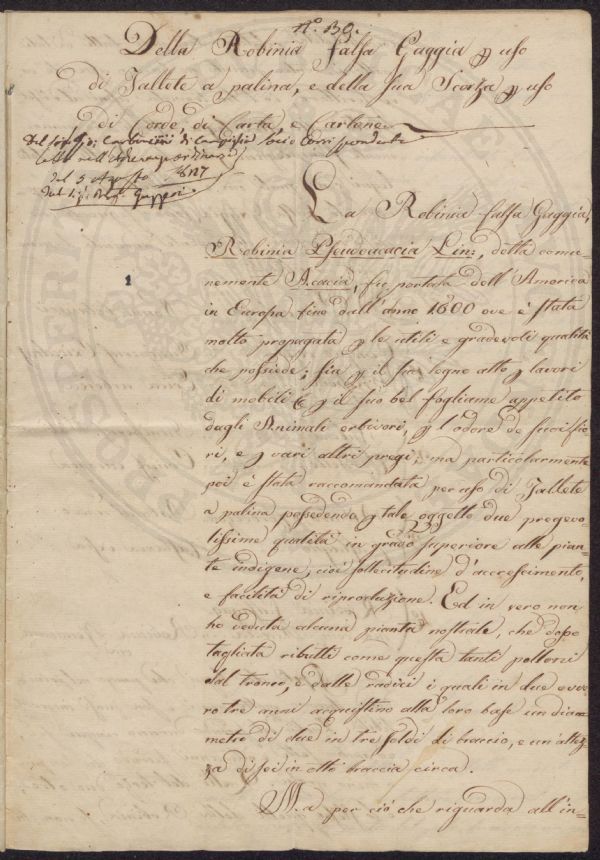 N.° 39.
Della Robinia falsa Gaggia p uso
di Tallete a palina, e della sua Scorza p uso
di Corde, di Carta, e Cartone
Del Sig. di socio corrispondente
letta nell'Adunanza ordinaria
del 5 Agosto 1827
dal Sig.
La Robinia falsa Gaggia,
Robinia Pseudoacacia Lin:, detta comu=
nemente Acacia, fu portata dell'America
in Europa fino dall'anno 1600 ove è stata
molto propagata p le utili e gradevoli qualità
che possiede; sia p il suo legno atto p lavori
di mobili & p il suo bel fogliame appetito
dagli Animali erbivori, p l'odore de suoi fio
ri, e p vari altri pregi; ma particolarmente
poi è stata raccomandata per uso di Tallete
a palina possedendo p tale oggetto due pregevo=
lissime qualità in grado superiore alle pian=
te indigene, cioè sollecitudine d'accrescimento,
e facilità di riproduzione. Ed in vero non
ho veduta alcuna pianta nostrale, che dopo
tagliata ributti come questa tanti polloni
dal tronco, e dalle radici i quali in due ovve
ro tre anni acquistino alla loro base un dia=
metro di due in tre soldi di braccio, e un altez
za di sei in otto braccia circa.
Ma per ciò che riguarda all'in=
1